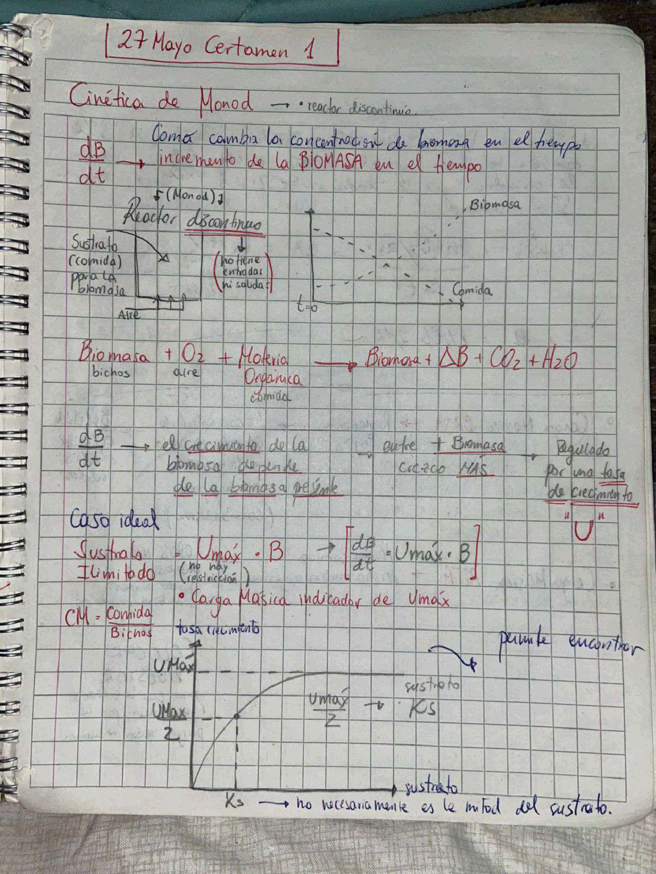 27 Mayo Certamen 1
Cinética de Monod → • reactor discontinuo.
Como cambia la concentración de biomasa en el tiempo
dB/dt → incremento de la BIOMASA en el tiempo
(Monod)
Reactor discontinuo
Sustrato
(comida)
para la
biomasa
(no tiene
entradas
ni salidas)
Aire
Biomasa
Comida
t=0
Biomasa + O2 + Materia Orgánica → Biomasa + ΔB + CO2 + H2O
bichos aire comida
dB/dt → el crecimiento de la
biomasa depende
de la biomasa presente
→ entre + Biomasa
crezco MÁS
→ Regulado
por una tasa
de crecimiento
"U"
Caso ideal
Sustrato
Ilimitado
= Umáx · B → [dB/dt = Umáx · B]
(no hay
restricción)
• Carga Másica indicador de Umáx
CM = Comida/Bichos
tasa crecimiento
permite encontrar
UMáx
UMáx/2
Umáx/2 → sustrato
Ks
sustrato
Ks → no necesariamente es la mitad del sustrato.